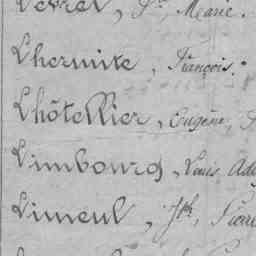 Levrel, Jn Marie.
Lhermite, François.
Lhôtellier, Eugène,
Limbourg, Louis
Limeul, Jph, Pierre